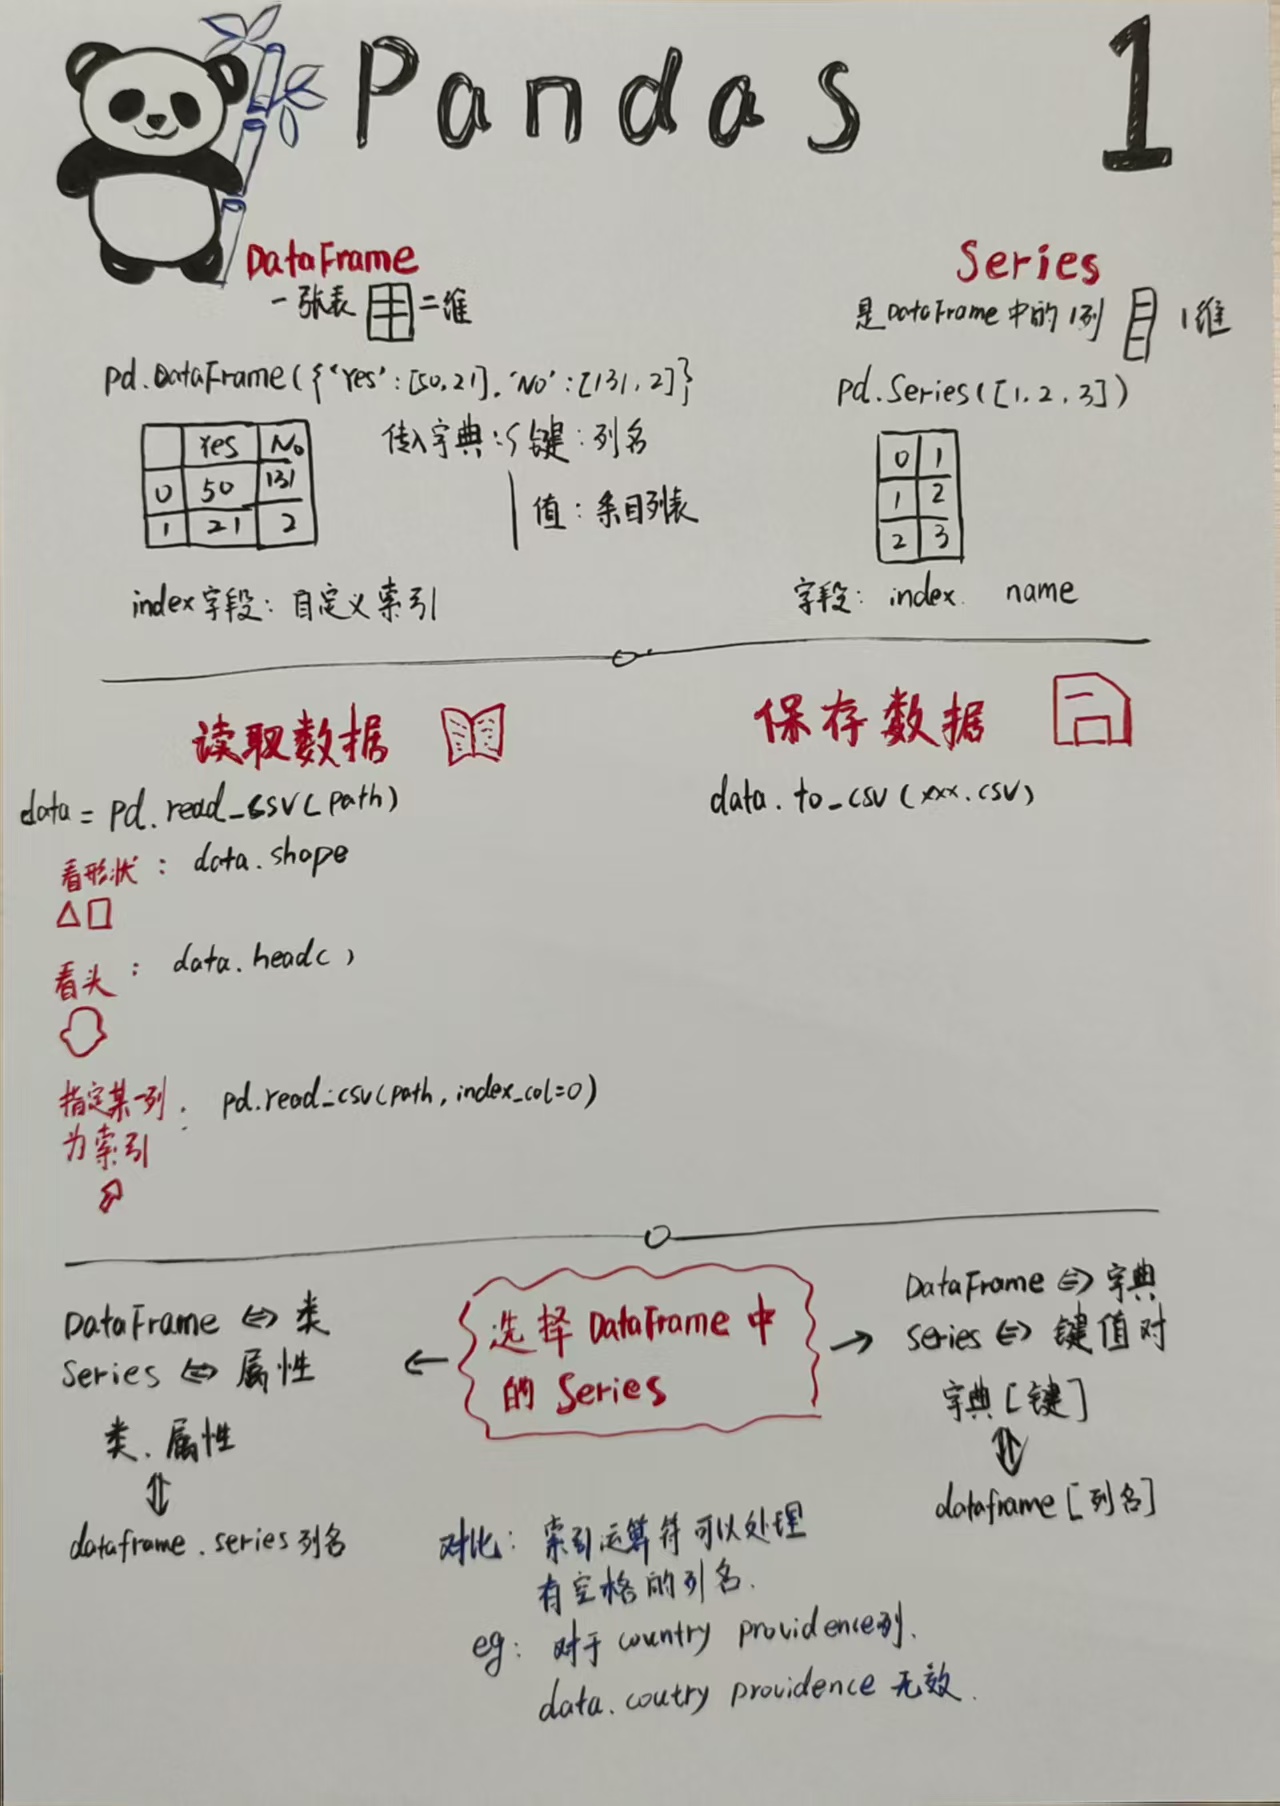 Pandas 1
DataFrame
一张表 二维
pd.DataFrame({'Yes':[50,21],'No':[131,2]}
Yes No
0 50 131
1 21 2
传入字典:{键:列名
值:条目列表
index字段:自定义索引
Series
是DataFrame中的1列 1维
pd.Series([1,2,3])
0 1
1 2
2 3
字段: index. name
读取数据
data = pd.read_csv(path)
看形状: data.shape
看头: data.head()
指定某一列: pd.read_csv(path, index_col=0)
为索引
保存数据
data.to_csv(xxx.csv)
选择DataFrame中
的Series
←
DataFrame ⇔ 类
Series ⇔ 属性
类.属性
⇕
dataframe.series列名
→
DataFrame ⇔ 字典
Series ⇔ 键值对
字典[键]
⇕
dataframe[列名]
对比: 索引运算符可以处理
有空格的列名.
eg: 对于country providence列.
data.coutry providence 无效.